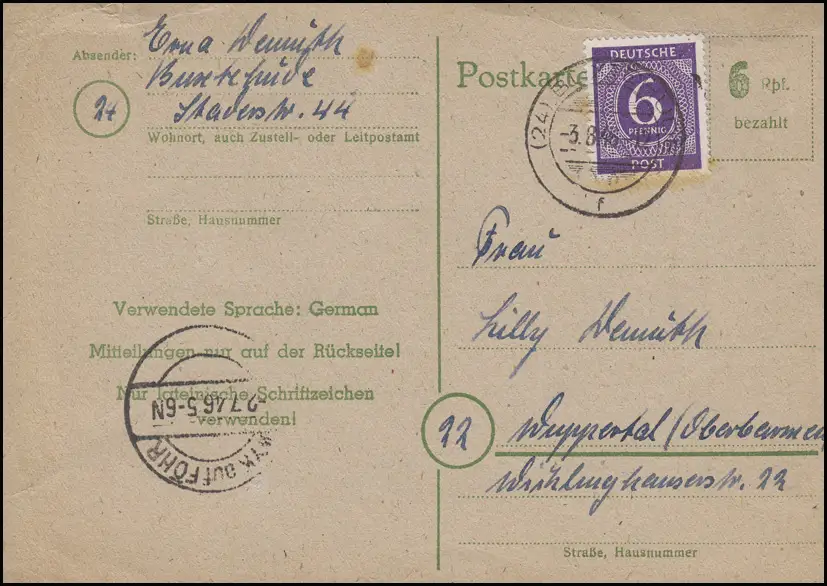 Absender: Erna Demuth
24 Buxtehude
Staderstr. 44
Wohnort, auch Zustell- oder Leitpostamt
Straße, Hausnummer
Verwendete Sprache: German
Mitteilungen nur auf der Rückseite!
Nur lateinische Schriftzeichen
verwenden!
-2.7.46.5-6N
AUF FÖHR
Postkarte
DEUTSCHE
6
PFENNIG
POST
6 Rpf.
bezahlt
(24)
-3.8.
f
Frau
Lilly Demuth
22 Wuppertal/Oberbarmen
Wichlinghauserstr. 22
Straße, Hausnummer